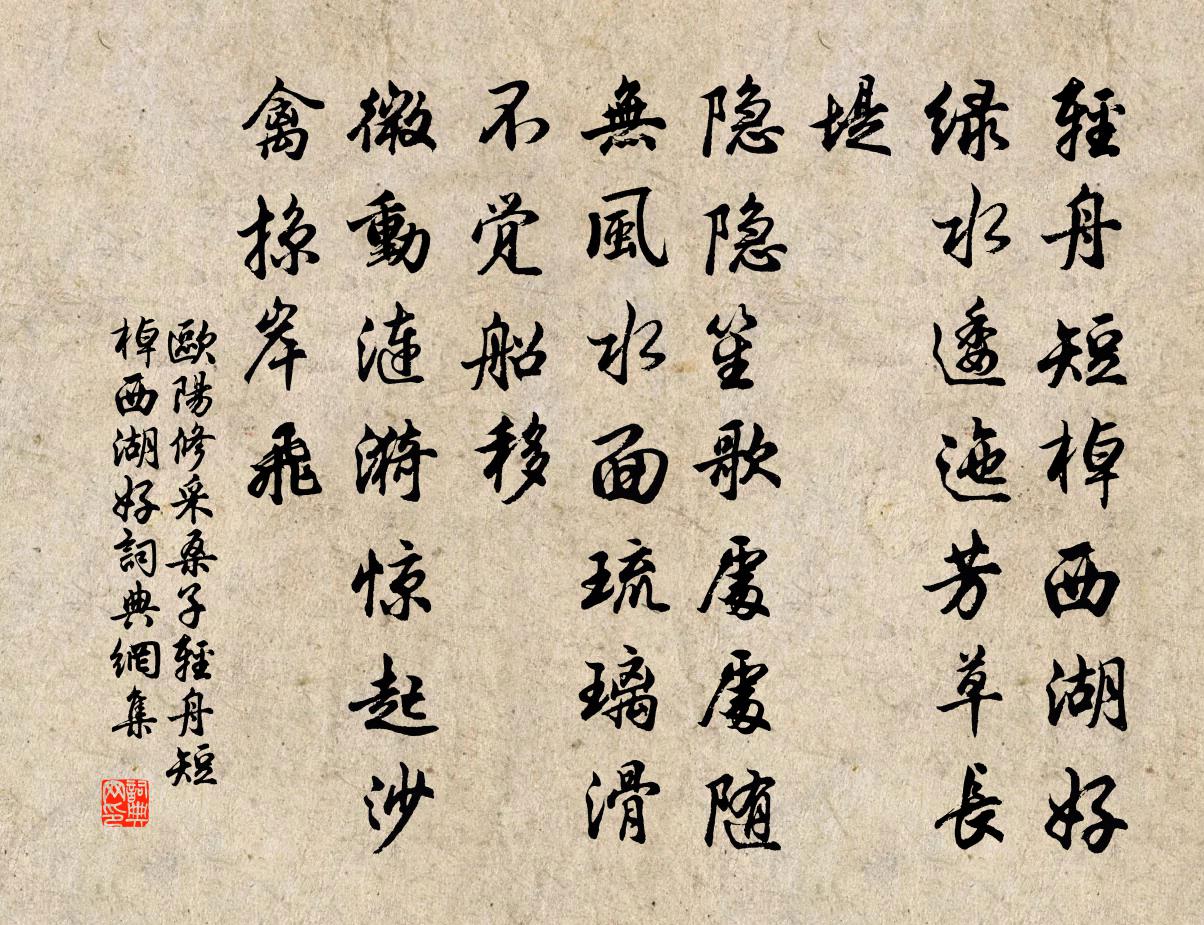 輕舟短棹西湖好
緑水逶迤芳草長
堤
隐隐笙歌處處随
無風水面琉璃滑
不觉船移
微動涟漪惊起沙
禽掠岸飛
歐陽修采桑子輕舟短
棹西湖好詞典網集
詞典
网印